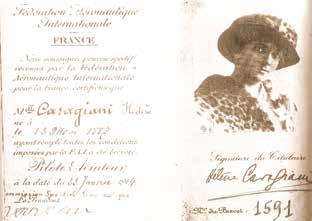 Fédération Aéronautique
Internationale
FRANCE
Nous soussignés pouvoir sportif
reconnu par la Fédération
Aéronautique Internationale
pour la France certifions que
Mlle Caragiani
né à
le
ayant rempli toutes les conditions
imposées par la F.A.I. a été breveté
Pilote Aviateur
à la date du 22 Janvier 1914
Le Président
Signature du Titulaire
Caragiani
No du Brevet 1591